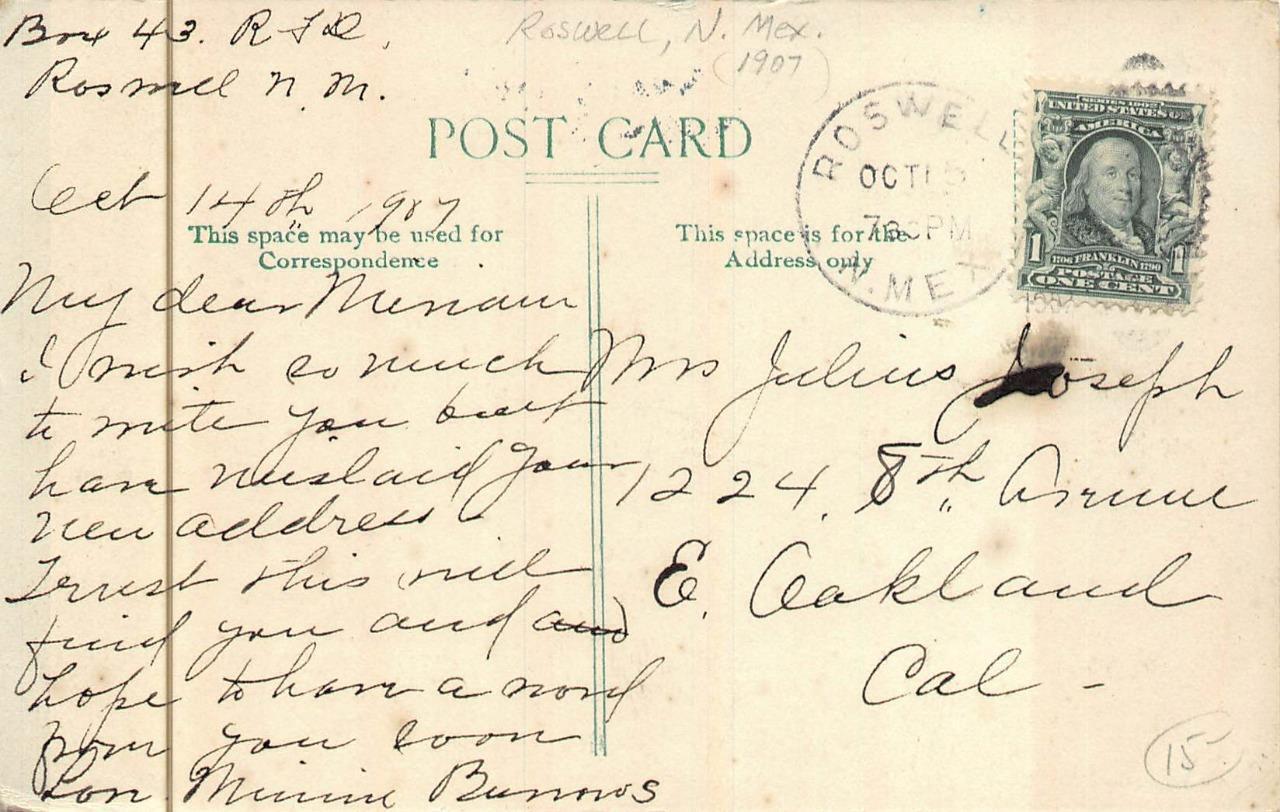 Box 43. R F D,
Roswell N. M.
Roswell, N. Mex.
(1907)
POST CARD
Oct 14th 1907
This space may be used for
Correspondence
This space is for the
Address only
ROSWELL
OCT 15
7 30 PM
N. MEX
SERIES 1902
UNITED STATES OF
AMERICA
1 1
1706 FRANKLIN 1790
POSTAGE
ONE CENT
My dear Miriam
I wish so much
to write you but
have mislaid your
new address
Trust this will
find you and and
hope to have a word
from you soon
Minnie Burrows
Mrs Julius Joseph
1224. 8th Avenue
E. Oakland
Cal -
15